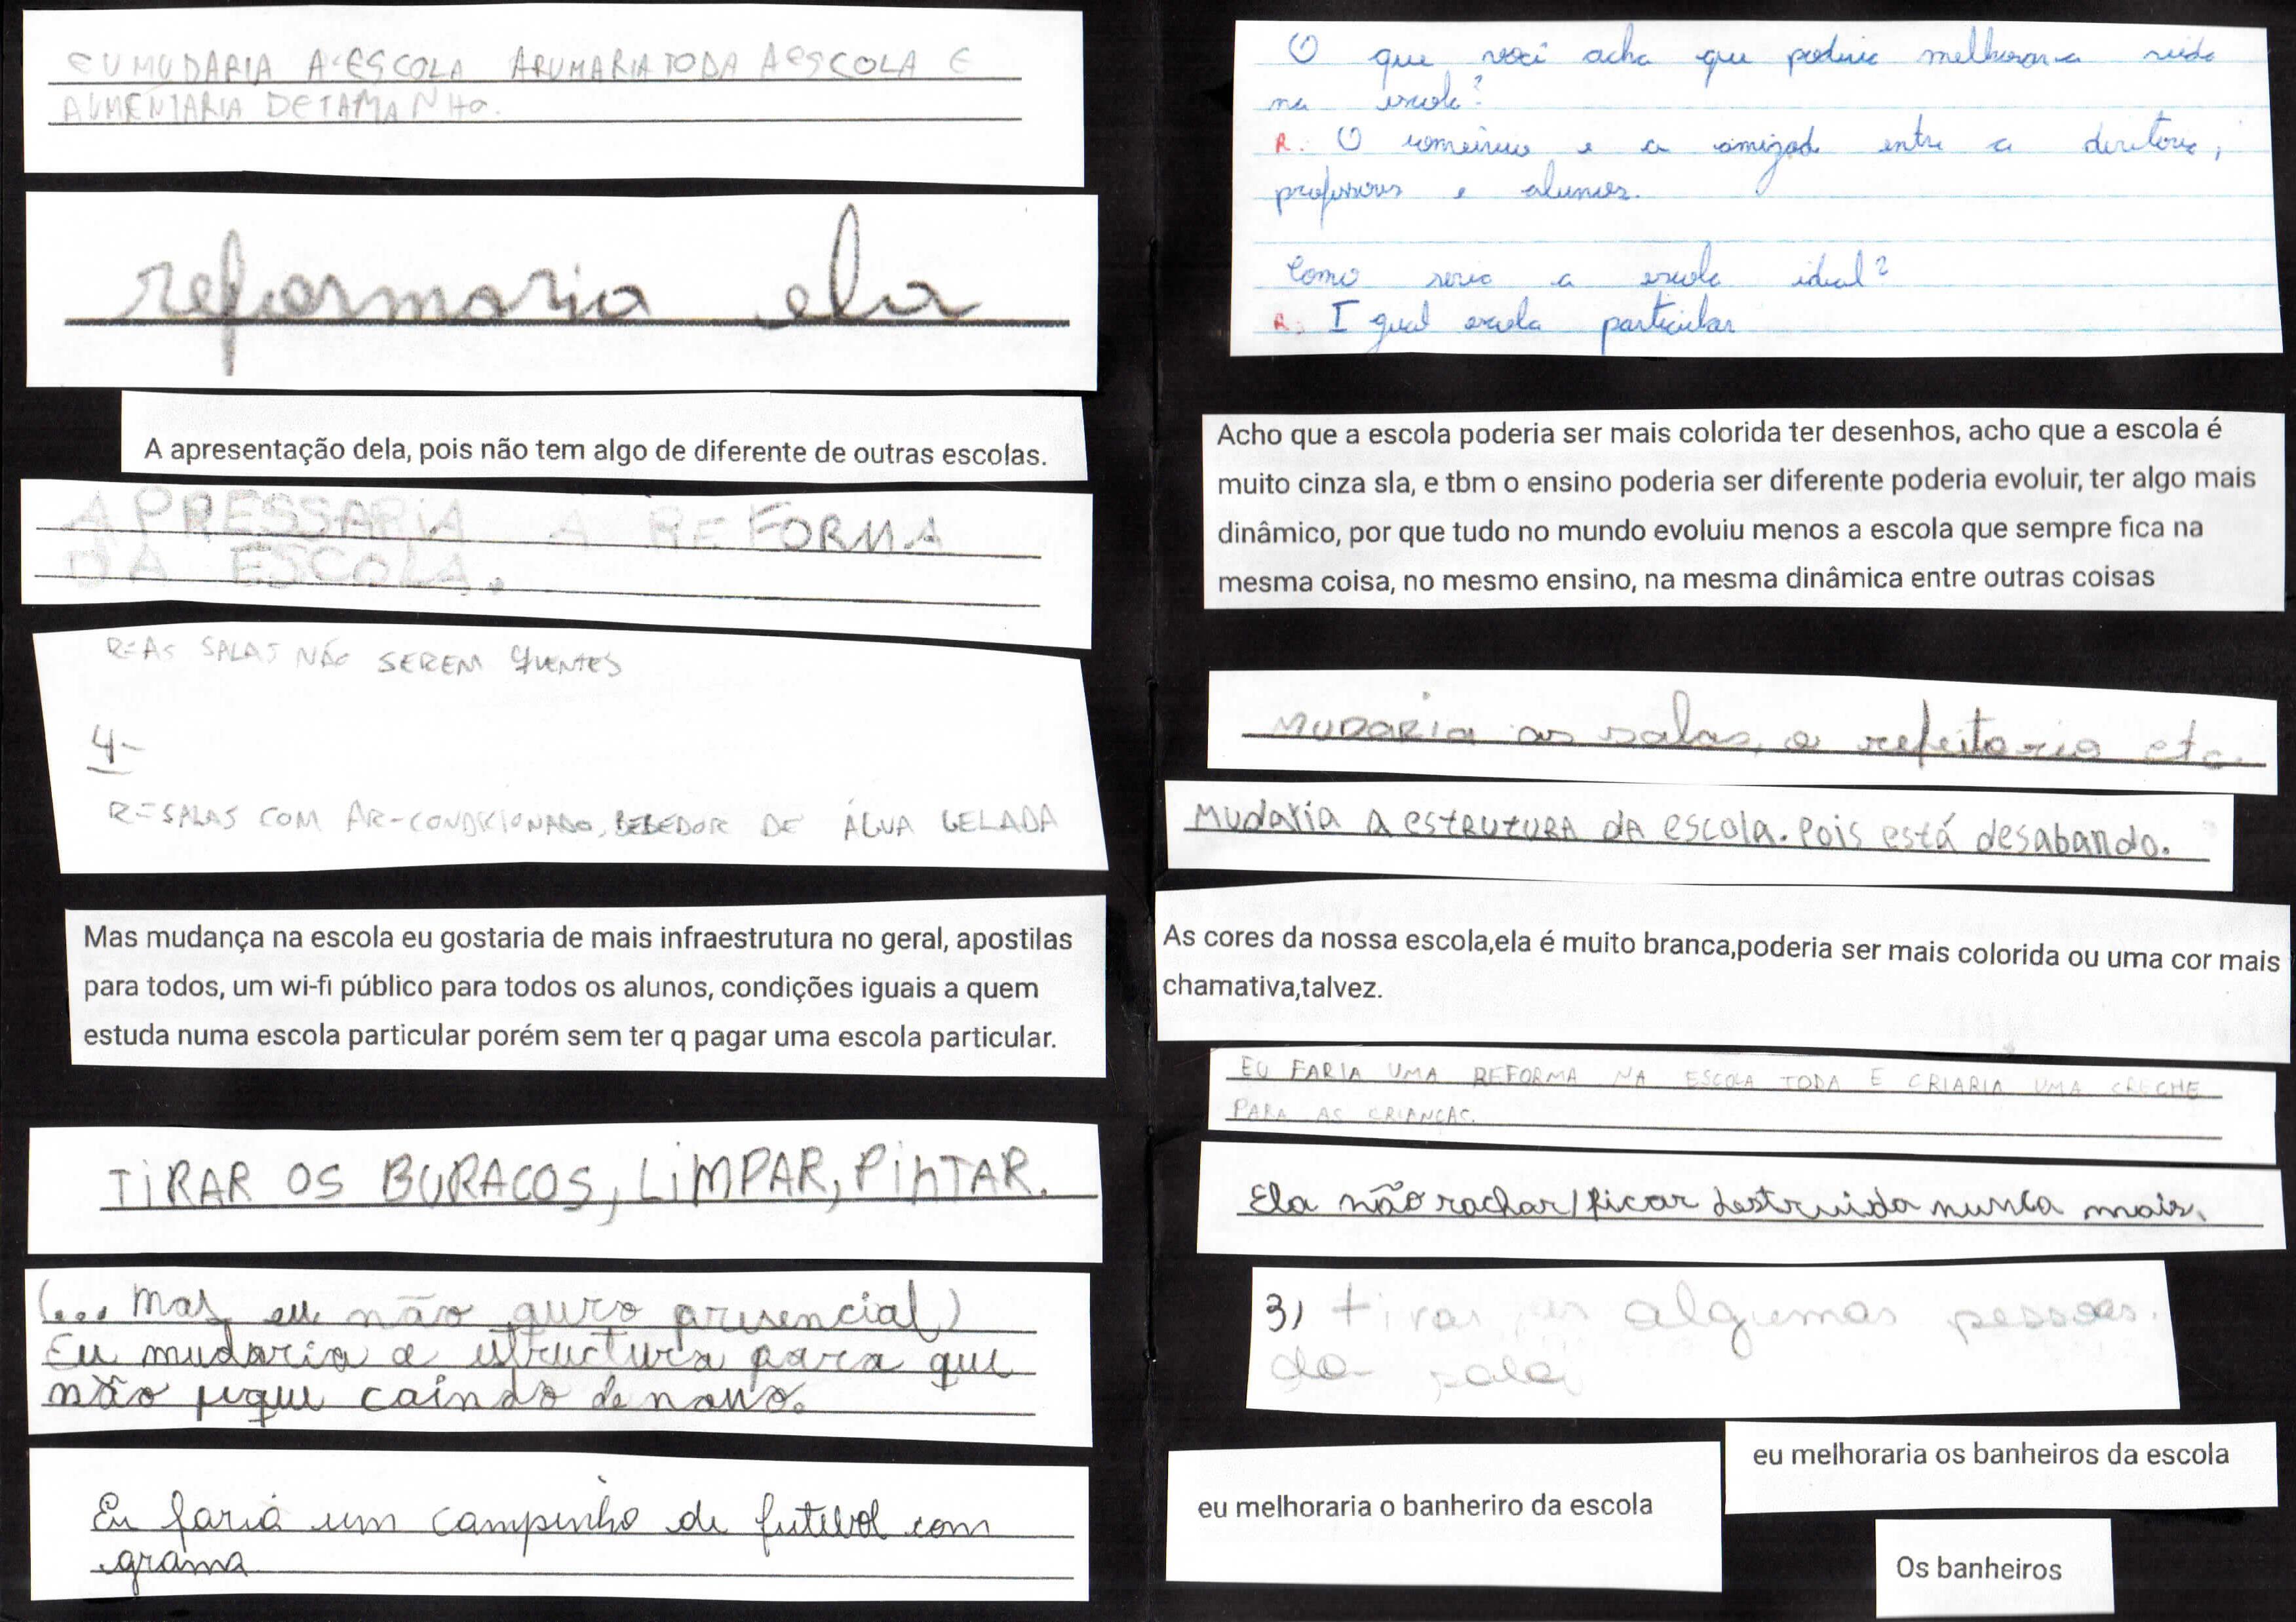 EU MUDARIA A ESCOLA ARUMARIA TODA A ESCOLA E
AUMENTARIA DE TAMANHO.
reformaria ela
A apresentação dela, pois não tem algo de diferente de outras escolas.
APRESSARIA A REFORMA
DA ESCOLA.
R=AS SALAS NÃO SEREM QUENTES
4-
R=SALAS COM AR-CONDICIONADO, BEBEDOR DE ÁGUA GELADA
Mas mudança na escola eu gostaria de mais infraestrutura no geral, apostilas
para todos, um wi-fi público para todos os alunos, condições iguais a quem
estuda numa escola particular porém sem ter q pagar uma escola particular.
TIRAR OS BURACOS, LIMPAR, PINTAR.
(... Mas eu não quero presencial)
Eu mudaria a estructura para que
não fique caindo de novo.
Eu faria um campinho de futebol com
grama
O que você acha que poderia melhorar a
na escola?
R. O comércio e a amizade entre a diretora,
professores e alunos.
Como seria a escola ideal?
R. Igual escola particular
Acho que a escola poderia ser mais colorida ter desenhos, acho que a escola é
muito cinza sla, e tbm o ensino poderia ser diferente poderia evoluir, ter algo mais
dinâmico, por que tudo no mundo evoluiu menos a escola que sempre fica na
mesma coisa, no mesmo ensino, na mesma dinâmica entre outras coisas
MUDARIA as salas, o refeitorio etc.
Mudaria a estrutura da escola. Pois está desabando.
As cores da nossa escola,ela é muito branca,poderia ser mais colorida ou uma cor mais
chamativa,talvez.
EU FARIA UMA REFORMA NA ESCOLA TODA E CRIARIA UMA CRECHE
PARA AS CRIANÇAS.
Ela não rachar/ficar destruida nunca mais.
3) tirar as algumas pessoas.
da sala
eu melhoraria o banheriro da escola
eu melhoraria os banheiros da escola
Os banheiros